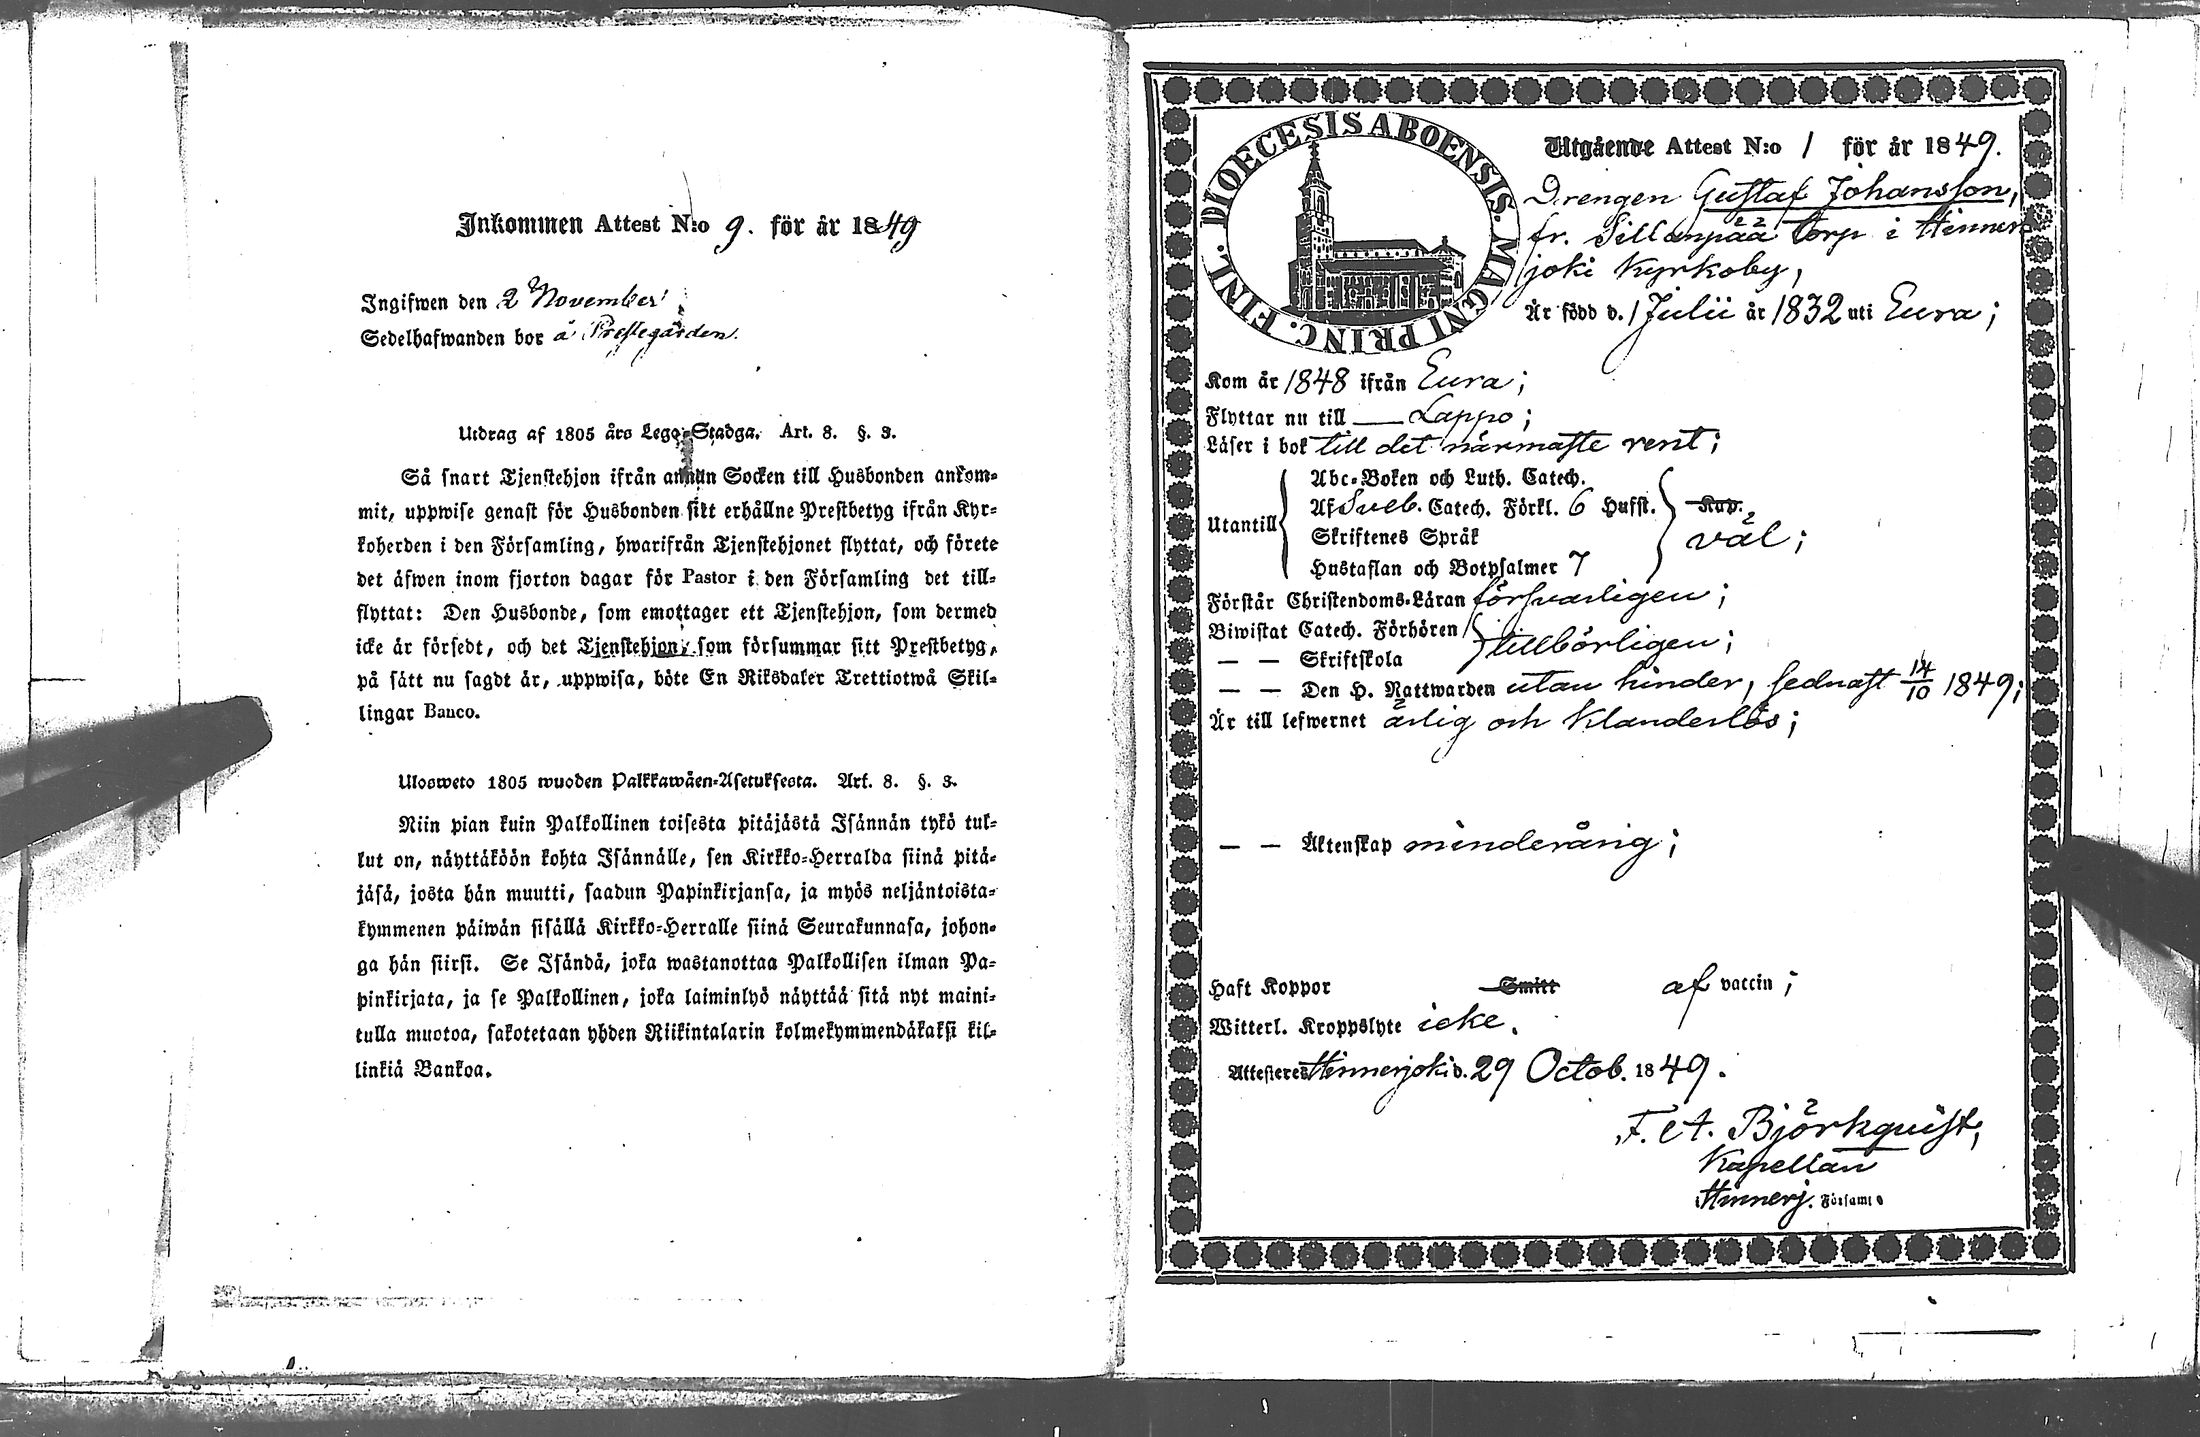 Inkommen Attest N:o 9. för år 1849
Ingifwen den 2 November
Sedelhafwanden bor å Prestegården.
Utdrag af 1805 års Lego-Stadga. Art. 8. §. 3.
Så snart Tjenstehjon ifrån annan Socken till Husbonden ankom-
mit, uppwise genast för Husbonden sitt erhållne Prestbetyg ifrån Kyr-
koherden i den Församling, hwarifrån Tjenstehjonet flyttat, och förete
det äfwen inom fjorton dagar för Pastor i den Församling det till-
flyttat: Den Husbonde, som emottager ett Tjenstehjon, som dermed
icke är försedt, och det Tjenstehjon, som försummar sitt Prestbetyg,
på sätt nu sagdt är, uppwisa, böte En Riksdaler Trettiotwå Skil-
lingar Banco.
Ulosweto 1805 wuoden Palkkawäen-Asetuksesta. Art. 8. §. 3.
Niin pian kuin Palkollinen toisesta pitäjästä Isännän tykö tul-
lut on, näyttäköön kohta Isännälle, sen Kirkko-Herralda siinä pitä-
jäsä, josta hän muutti, saadun Papinkirjansa, ja myös neljäntoista-
kymmenen päiwän sisällä Kirkko-Herralle siinä Seurakunnasa, johon-
ga hän siirsi. Se Isändä, joka wastanottaa Palkollisen ilman Pa-
pinkirjata, ja se Palkollinen, joka laiminlyö näyttää sitä nyt maini-
tulla muotoa, sakotetaan yhden Riikintalarin kolmekymmendäkaksi kil-
linkiä Bankoa.
DIOECESIS ABOENSIS. MAGNI PRINC. FINL.
Utgående Attest N:o 1 för år 1849.
Drengen Gustaf Johansson,
fr. Sillanpää Torp i Hinner
joki Kyrkoby,
Är född d. 1 Julii år 1832 uti Eura;
Kom år 1848 ifrån Eura;
Flyttar nu till — Lappo;
Läser i bok till det närmaste rent;
Abc-Boken och Luth. Catech.
Utantill Af Sveb. Catech. Förkl. 6 Hufst. Kap.
Skriftenes Språk väl;
Hustaflan och Botpsalmer 7
Förstår Christendoms-Läran försvarligen;
Biwistat Catech. Förhören
— — Skriftskola tillbörligen;
— — Den H. Nattwarden utan hinder, sednast 14/10 1849;
Är till lefwernet ärlig och klanderlös;
— — Äktenskap minderårig;
Haft Koppor Smitt af vaccin;
Witterl. Kroppslyte icke.
Attesteres Hinnerjoki d. 29 Octob. 1849.
F. A. Björkquist,
Kapellan
i Hinnerj. Församl.